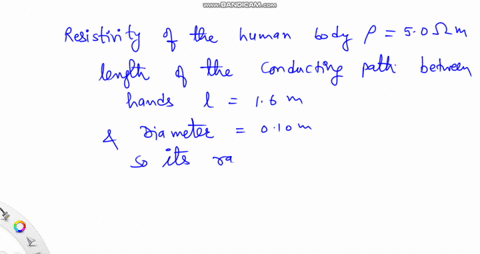 WWW.BANDICAM.COM
Resistivity of the human body ρ = 5.0 Ω m
length of the conducting path between
hands l = 1.6 m
& Diameter = 0.10 m
so its ra